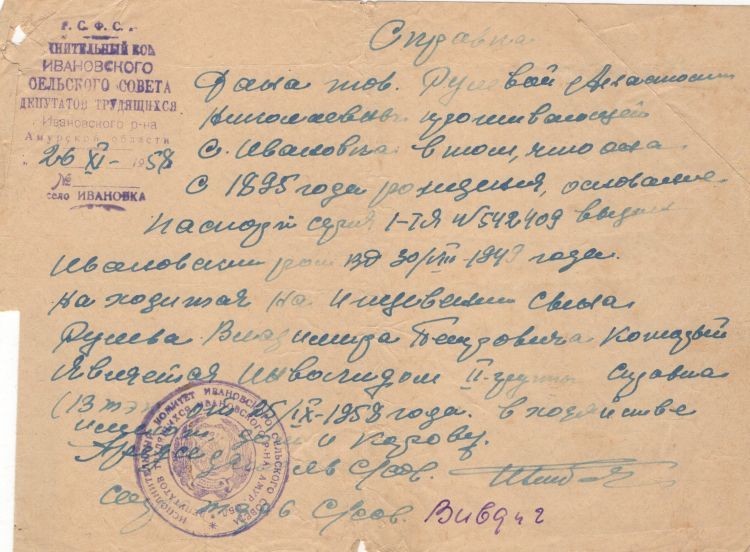 Р. С. Ф. С. Р
ИСПОЛНИТЕЛЬНЫЙ КОМ
ИВАНОВСКОГО
СЕЛЬСКОГО СОВЕТА
ДЕПУТАТОВ ТРУДЯЩИХСЯ
Ивановского р-на
Амурской области
"26" XI 1958
№
село ИВАНОВКА
Справка
Дана тов. Рулевой
Николаевны проживающей
с. Ивановка в том, что она
с 1895 года рождения, основание
паспорт серия I-ТЯ №542409 выдан
Ивановским РО МВД 30/VIII-1949 года.
находится на иждивении сына
Рулева Владимира который
является инвалидом II-группы справка
IX-1958 года. в хозяйстве
имеет дом и корову.
с/сов.
с/сов.
ИСПОЛНИТЕЛЬНЫЙ КОМИТЕТ ИВАНОВСКОГО СЕЛЬСКОГО СОВЕТА
ДЕПУТАТОВ ТРУДЯЩИХСЯ ИВАНОВСКОГО Р-НА АМУР. ОБЛ.